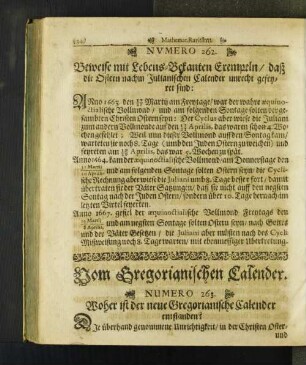 Mathemat. Raritäten.
NVMERO 262.
Beweise mit Lebens-Bekanten Exempeln/ daß
die Ostern nachm Julianischen Calender unrecht gefey-
ret sind:
ANno 1663. den Martij am Freytage/ war der wahre æquino-
ctialische Vollmond/ und am folgenden Sontage solten der ge-
sambten Christen Ostern seyn: Der Cyclus aber wiese die Juliani
zum andern Vollmonde auf den Aprilis, das waren schon 4. Wo-
chen gefehlet. Und was des Vollmond auff den Sontag kam/
warteten sie noch 8. Tage (umb den Jüden Ostern zu weichen) und
feyreten am Aprilis, das war 5. Wochen zu spät.
Anno 1664. kam der æquinoctialische Vollmond am Donnerstage den
und am folgenden Sontage solten Ostern seyn: der Cycli-
sche Rechnung aber wiese die Julianos umb 9. Tage besser fort/ damit
übertraten sie der Väter Satzungen/ daß sie nicht auff den negsten
Sontag nach der Jüden Ostern/ sondern über 10. Tage hernach im
letzten Viertel feyerten.
Anno 1667. gefiel der æquinoctialische Vollmond Freytags den
und am negsten Sontage solten Ostern seyn/ nach Gottes
und der Väter Gesetzen/ die Juliani aber müsten nach des Cycli
Mißweisung noch 8. Tage warten/ mit ebenmässiger Ubertretung.
Vom Gregorianischen Calender.
NUMERO 263.
Woher ist der neue Gregorianische Calender
entstanden?
DIe überhand genommene Unrichtigkeit/ in der Christen Oster-
und